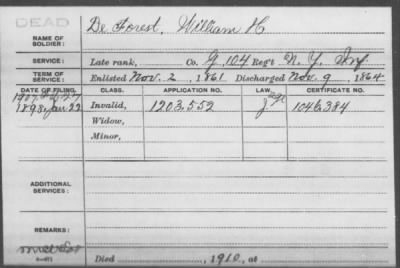 DEAD
De Forest, William H
NAME OF SOLDIER:
SERVICE: Late rank, Co. G, 104 Reg't N. Y. Inf.
TERM OF SERVICE: Enlisted Nov. 2, 1861 Discharged Nov. 9, 1864
DATE OF FILING. CLASS. APPLICATION NO. LAW. CERTIFICATE NO.
1907
1898, Jan 22 Invalid, 1203.552 1046.384
Widow,
Minor,
ADDITIONAL SERVICES:
REMARKS:
Died 1910, at